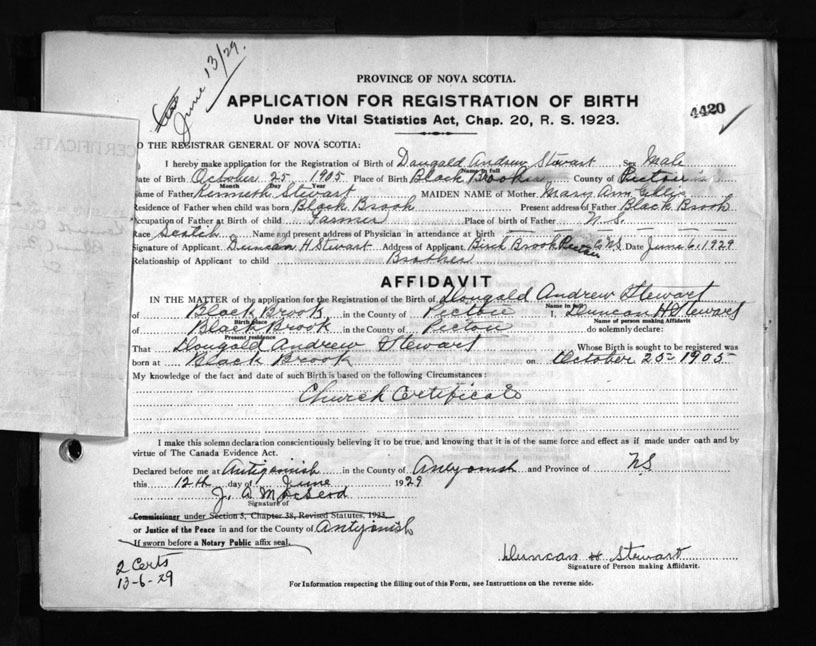 June 13/29.
PROVINCE OF NOVA SCOTIA.
APPLICATION FOR REGISTRATION OF BIRTH
4420
Under the Vital Statistics Act, Chap. 20, R. S. 1923.
TO THE REGISTRAR GENERAL OF NOVA SCOTIA:
CERTIFICATE O
I hereby make application for the Registration of Birth of Dougald Andrew Stewart Sex Male
Name in full
Date of Birth October 25 1905 Place of Birth Black Brook County of Pictou
Month Day Year
Name of Father Kenneth Stewart MAIDEN NAME of Mother Mary Ann Gillis
Residence of Father when child was born Black Brook Present address of Father Black Brook
Occupation of Father at Birth of child Farmer Place of birth of Father N.S.
Race Scotch Name and present address of Physician in attendance at birth
Signature of Applicant Duncan H Stewart Address of Applicant Brook Pictou Co NS Date June 6, 1929
Relationship of Applicant to child Brother
AFFIDAVIT
IN THE MATTER of the application for the Registration of the Birth of Dougald Andrew Stewart
Name in full
of Black Brook, in the County of Pictou I, Duncan H Stewart
Birth Place Name of person making Affidavit
of Black Brook in the County of Pictou do solemnly declare:
Present residence
That Dougald Andrew Stewart Whose Birth is sought to be registered was
born at Black Brook on October 25 - 1905
My knowledge of the fact and date of such Birth is based on the following Circumstances:
Church Certificate
I make this solemn declaration conscientiously believing it to be true, and knowing that it is of the same force and effect as if made under oath and by
virtue of The Canada Evidence Act.
Declared before me at Antigonish in the County of Antigonish and Province of NS
this 12th day of June 1929
J. A. McLeod
Signature of
Commissioner under Section 5, Chapter 38, Revised Statutes, 1923,
or Justice of the Peace in and for the County of Antigonish
If sworn before a Notary Public affix seal.
Duncan H Stewart
Signature of Person making Affidavit.
2 Certs
13-6-29
For Information respecting the filling out of this Form, see Instructions on the reverse side.